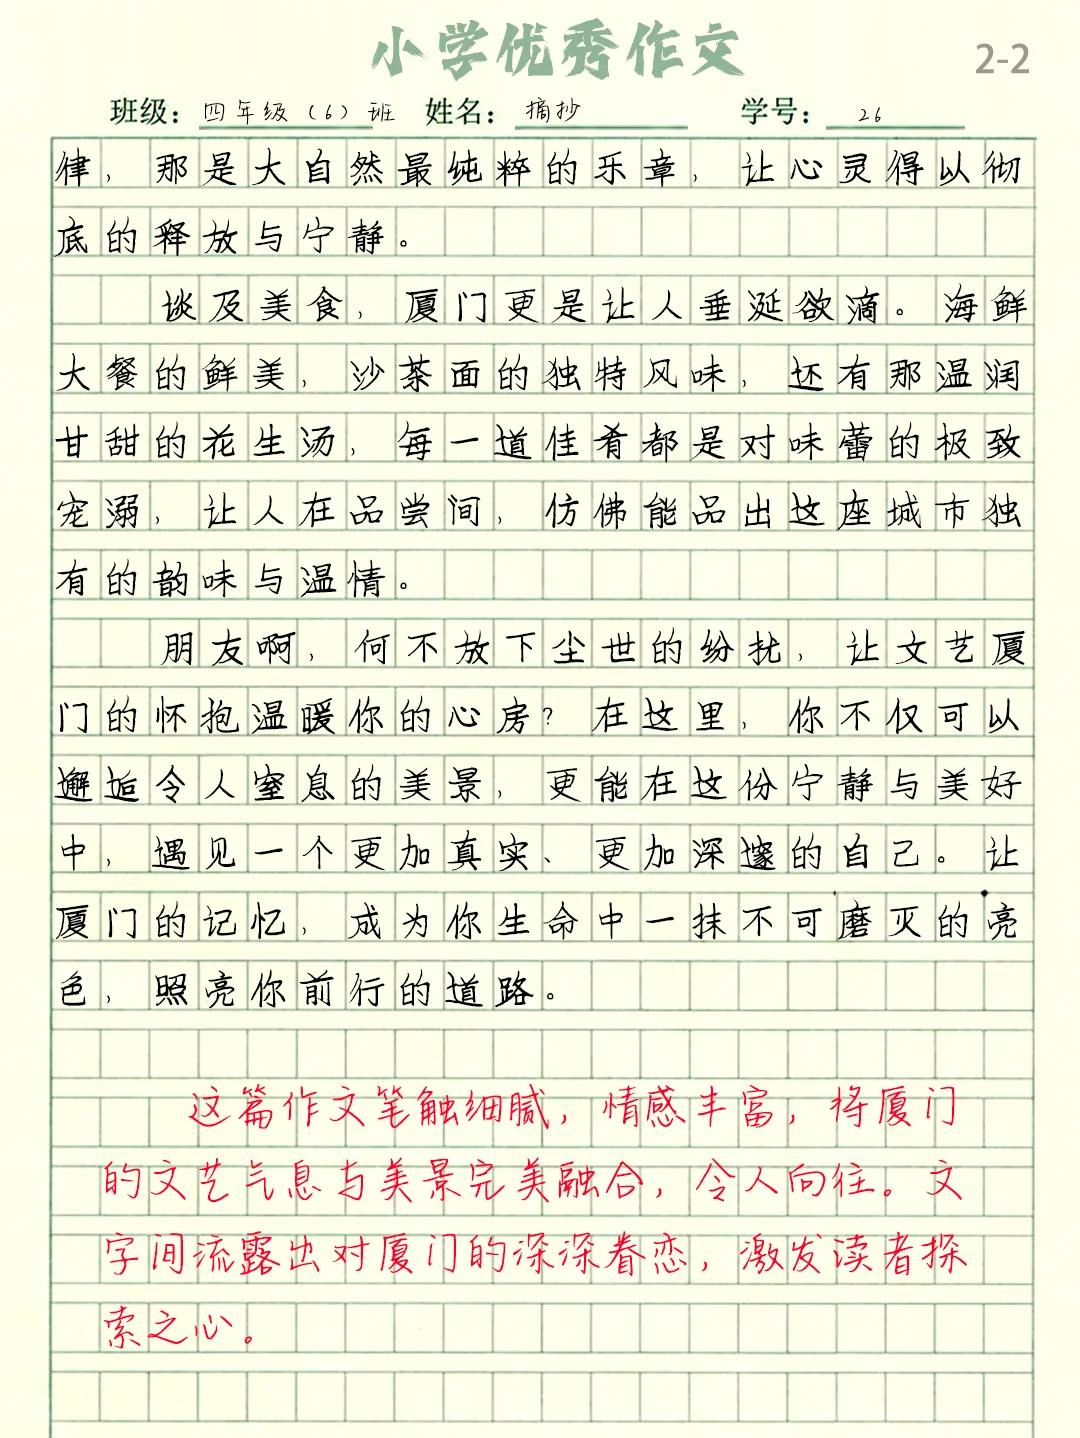 小学优秀作文
2-2
班级：四年级（6）班 姓名：摘抄 学号：26
律，那是大自然最纯粹的乐章，让心灵得以彻
底的释放与宁静。
谈及美食，厦门更是让人垂涎欲滴。海鲜
大餐的鲜美，沙茶面的独特风味，还有那温润
甘甜的花生汤，每一道佳肴都是对味蕾的极致
宠溺，让人在品尝间，仿佛能品出这座城市独
有的韵味与温情。
朋友啊，何不放下尘世的纷扰，让文艺厦
门的怀抱温暖你的心房？在这里，你不仅可以
邂逅令人窒息的美景，更能在这份宁静与美好
中，遇见一个更加真实、更加深邃的自己。让
厦门的记忆，成为你生命中一抹不可磨灭的亮
色，照亮你前行的道路。
这篇作文笔触细腻，情感丰富，将厦门
的文艺气息与美景完美融合，令人向往。文
字间流露出对厦门的深深眷恋，激发读者探
索之心。